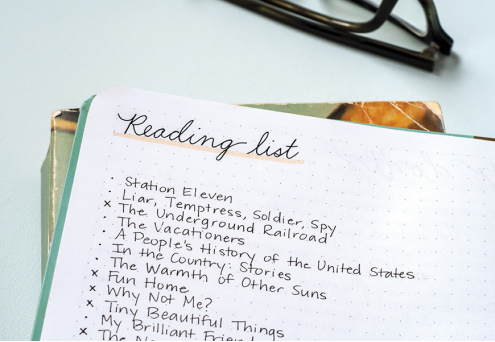 Reading list
· Station Eleven
· Liar, Temptress, Soldier, Spy
x The Underground Railroad
· The Vacationers
· A People's History of the United States
· In the Country: Stories
· The Warmth of Other Suns
x Fun Home
x Why Not Me?
x Tiny Beautiful Things
· My Brilliant
x The